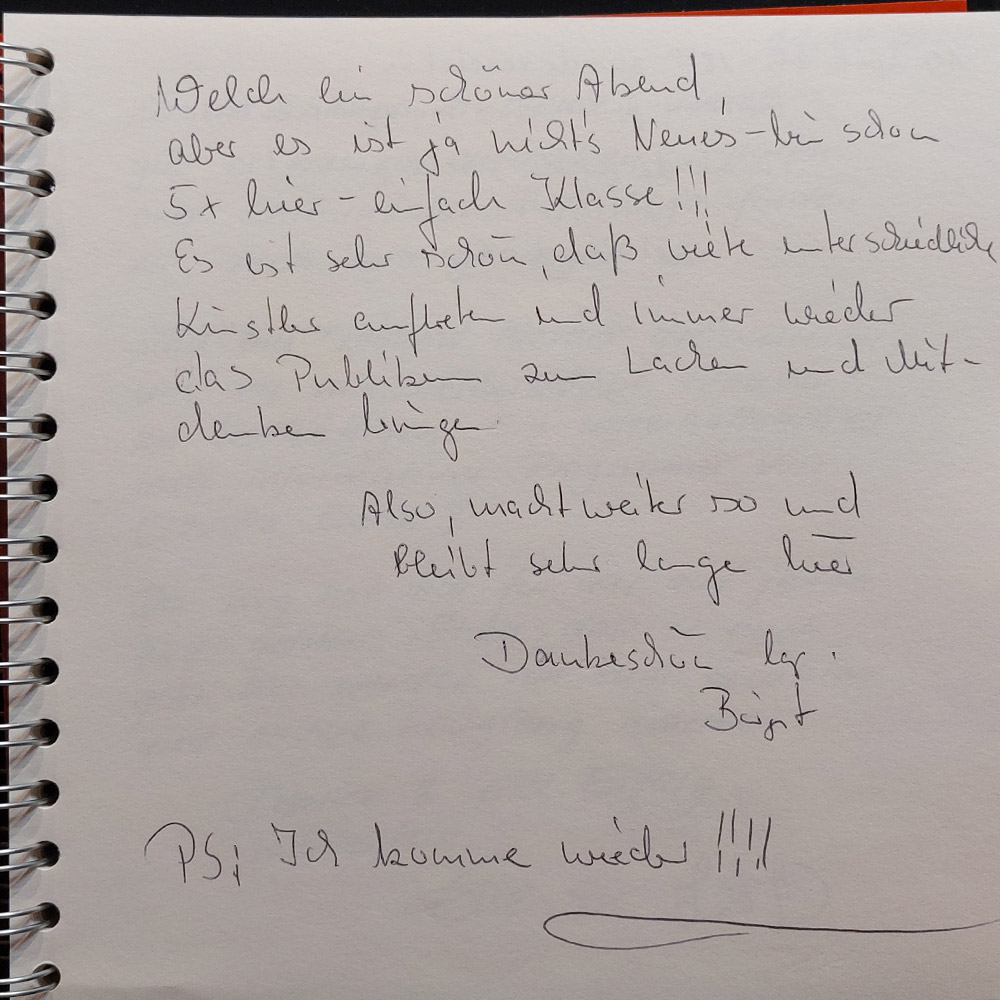 Welch ein schöner Abend,
aber es ist ja nicht's Neues - bin schon
5x hier - einfach Klasse!!!
Es ist sehr schön, daß viele unterschiedliche
Künstler auftreten und immer wieder
das Publikum zum Lachen und Mit-
denken bringen.
Also, macht weiter so und
bleibt sehr lange hier
Dankeschön lg.
Birgit
PS: Ich komme wieder !!!!